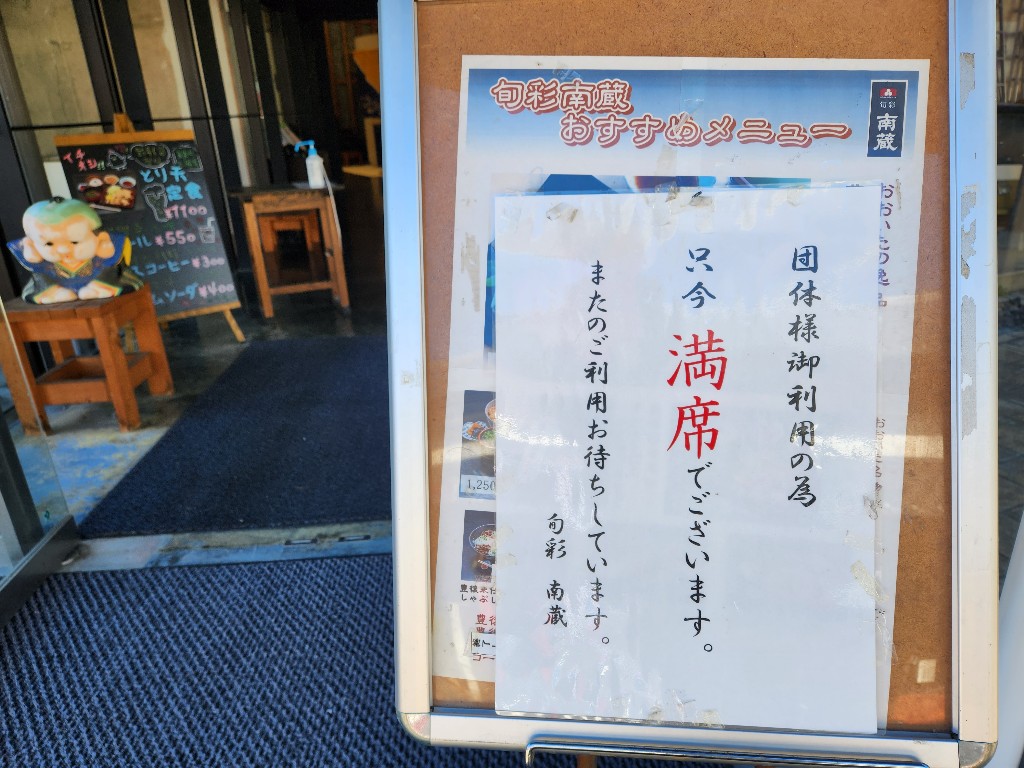 旬彩南蔵
おすすめメニュー
旬彩
南蔵
団体様御利用の為
只今 満席でございます。
またのご利用お待ちしています。
旬彩 南蔵
おおいたの逸品
1,250
イチオシ!!
とり天
定食
¥1100
ール ¥550
コーヒー ¥300
ムソーダ ¥400